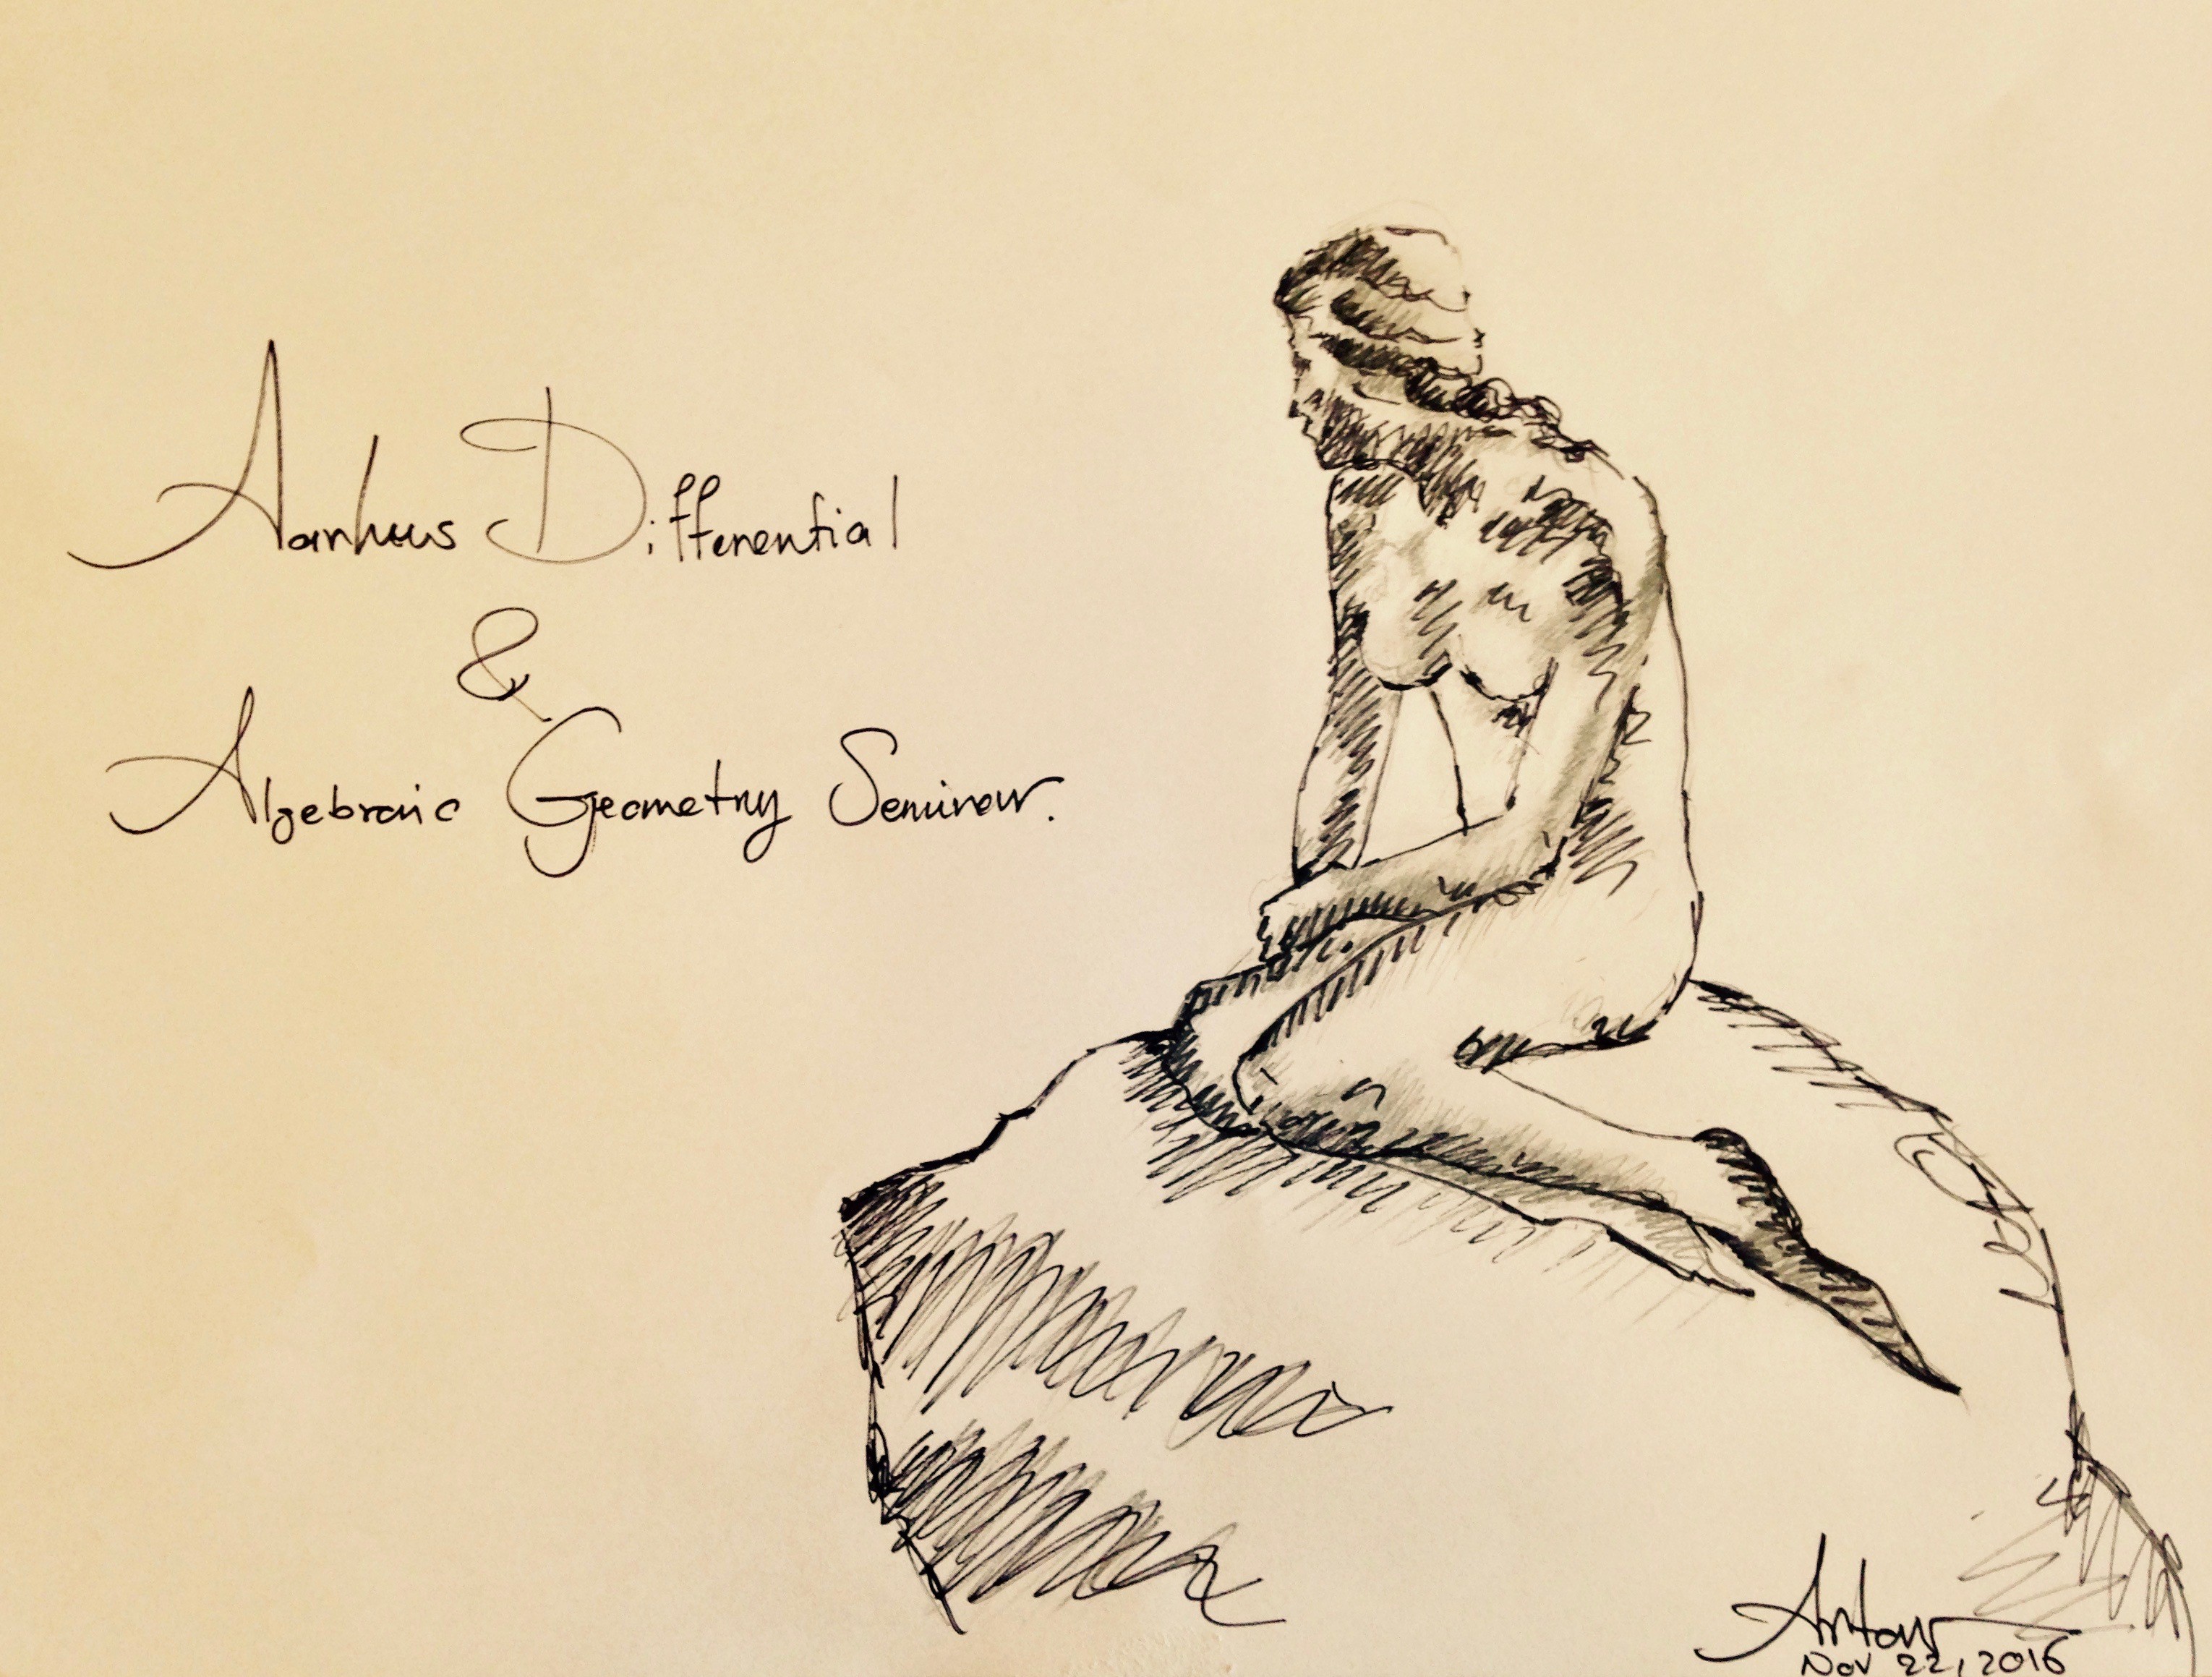 Aarhus Differential
&
Algebraic Geometry Seminar.
Nov 22, 2016